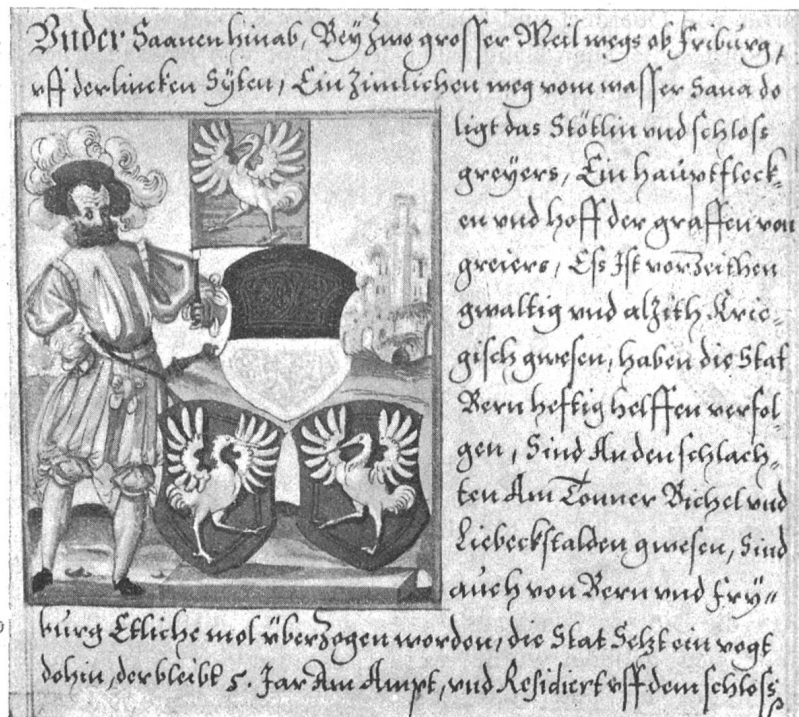 Vnder Saanen hinab, Bey zwo grosser Meil wegs ob Friburg,
vff der lincken Syten, Ein zimlichen weg vom wasser Sana do
ligt das Stötlin vnd schloss
greyers, Ein hauptfleck-
en vnd hoff der graffen von
greiers, Ess Ist vor zeithen
gwaltig vnd alzith Krie-
gisch gwesen, haben die Stat
Bern heftig helffen verfol-
gen, Sind An den schlach-
ten Am Tonner Bichel vnd
Liebeckstalden gwesen, Sind
auch von Bern vnd Fry-
burg Etliche mol überzogen worden, die Stat Setzt ein vogt
dohin, der bleibt 5. Jar Am Ampt, vnd Residiert vff dem schloss